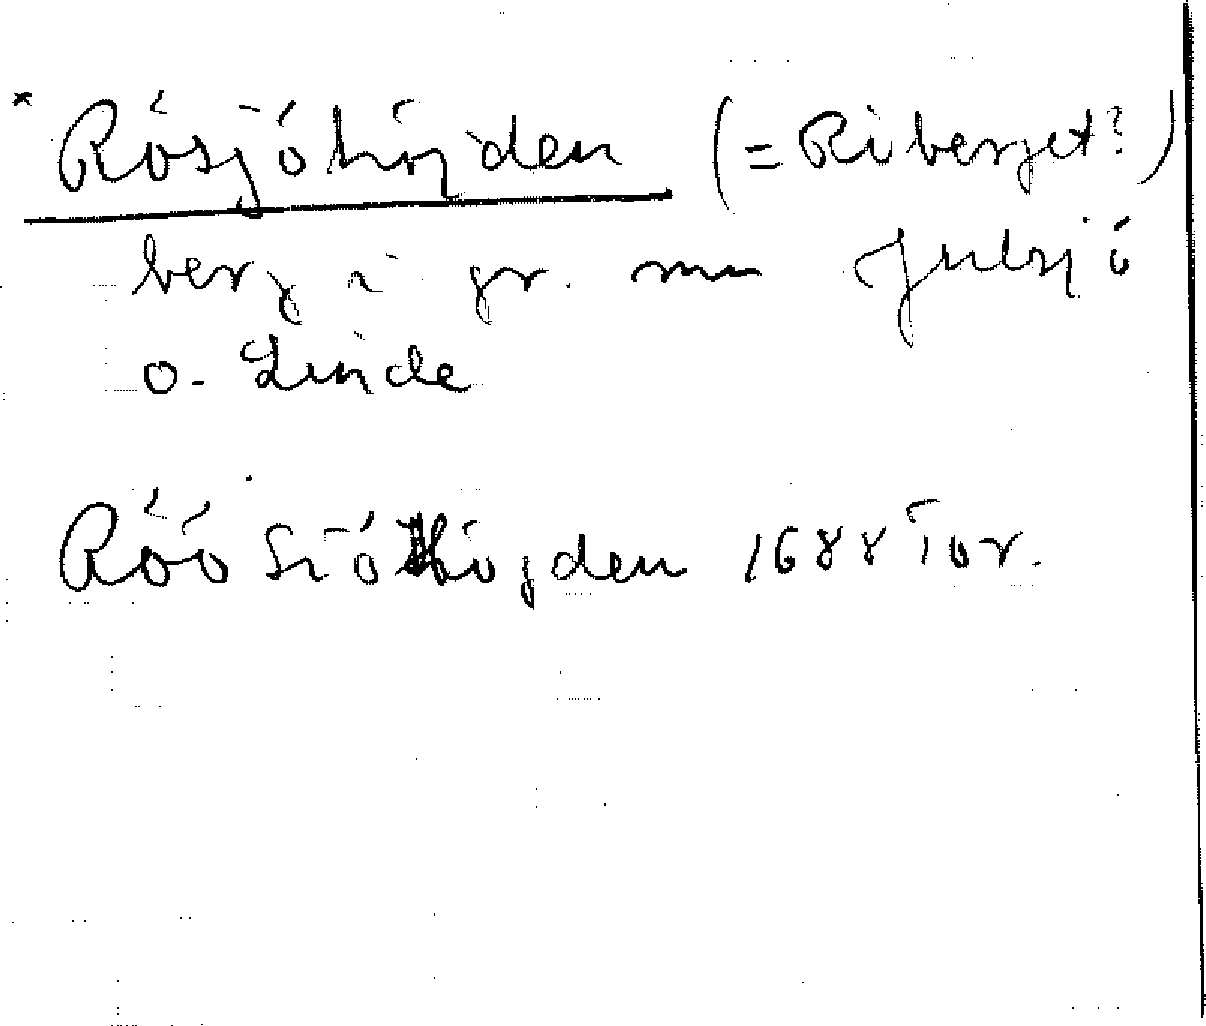 * Rösjöhöjden (= Röberget?)
berg i gr. m Gulsjö
o. Linde
Röö Siöhöjden 1688 Tor.